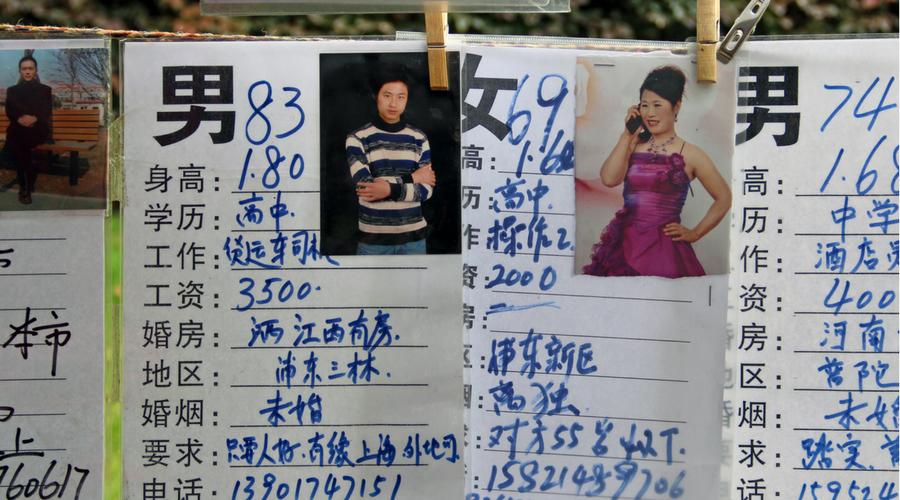 本市
上
760617
男 83
身高: 1.80
学历: 高中.
工作: 货运车司机
工资: 3500.
婚房: 江西有房.
地区: 浦东三林.
婚烟: 未婚
要求: 只要人好.有缘上海.外地可.
电话: 13901747151
女 69
高: 1.60
历: 高中.
作: 操作工
资: 2000
房:
区: 浦东新区
烟: 离独
: 对方55岁以下.
男 74
高: 1.68
历: 中学
作: 酒店
资: 400
房: 河南
区: 普陀
烟: 未婚
求: 踏实.
话: 159524